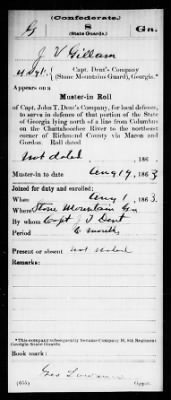 (Confederate.)
G 8 Ga.
(State Guards.)
J V Gillam
4 Sgt., Capt. Dent's Company
(Stone Mountain Guard), Georgia.*
Appears on a
Muster-in Roll
of Capt. John T. Dent's Company, for local defense,
to serve in defense of that portion of the State
of Georgia lying north of a line from Columbus
on the Chattahoochee River to the northeast
corner of Richmond County via Macon and
Gordon. Roll dated
not dated, 186
Muster-in to date Aug 19, 1863
Joined for duty and enrolled:
When Aug, 1863.
Where Stone Mountain Ga
By whom Capt J T Dent
Period 6 months
Present or absent not stated
Remarks:
*This company subsequently became Company G, 8th Regiment
Georgia State Guards.
Book mark:
Geo
(655) Copyist.